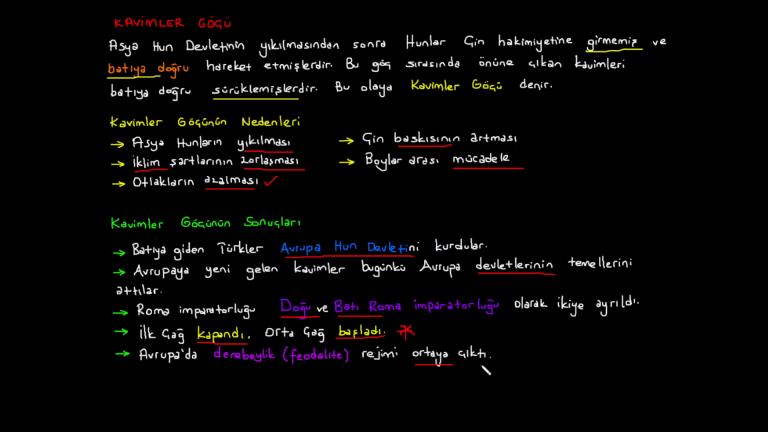 KAVİMLER GÖÇÜ
Asya Hun Devletinin yıkılmasından sonra Hunlar Çin hakimiyetine girmemiş ve
batıya doğru hareket etmişlerdir. Bu göç sırasında önüne çıkan kavimleri
batıya doğru sürüklemişlerdir. Bu olaya Kavimler Göçü denir.
Kavimler Göçünün Nedenleri
→ Asya Hunların yıkılması
→ Çin baskısının artması
→ İklim şartlarının zorlaşması
→ Boylar arası mücadele
→ Otlakların azalması ✓
Kavimler Göçünün Sonuçları
→ Batıya giden Türkler Avrupa Hun Devletini kurdular.
→ Avrupaya yeni gelen kavimler bugünkü Avrupa devletlerinin temellerini
attılar.
→ Roma imparatorluğu Doğu ve Batı Roma imparatorluğu olarak ikiye ayrıldı.
→ İlk Çağ kapandı, Orta Çağ başladı. *
→ Avrupa'da derebeylik (feodalite) rejimi ortaya çıktı.